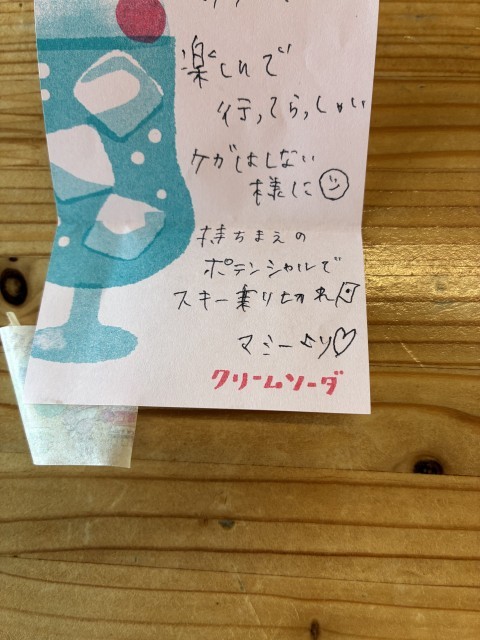 楽しんで
行ってらっしゃい
ケガはしない
様に
持ちまえの
ポテンシャルで
スキー乗り切れ
マミーより♡
クリームソーダ